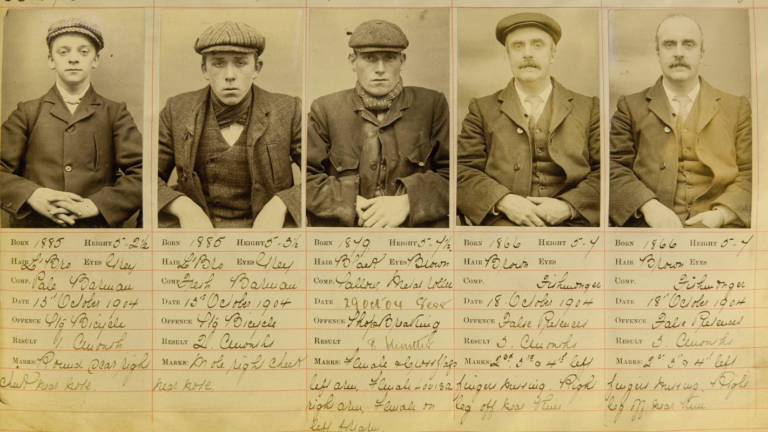 BORN 1885 HEIGHT 5-2½
HAIR L' Bro EYES Grey
COMP. Pale Barman
DATE 15th October 1904
OFFENCE Stg Bicycle
RESULT 1 Cmonth
MARKS: Round scar right
cheek near nose
BORN 1885 HEIGHT 5-3½
HAIR L' Bro EYES Grey
COMP. Fresh Barman
DATE 15th October 1904
OFFENCE Stg Bicycle
RESULT 2 Cmonths
MARKS: Mole right cheek
near nose.
BORN 1879 HEIGHT 5-4½
HAIR Black EYES Brown
COMP. Sallow
DATE 29 Oct 04
OFFENCE Shop Breaking
RESULT 9 months
MARKS: Female & Cross flags
left arm. Female
right arm. Female on
left
BORN 1866 HEIGHT 5-4
HAIR Brown EYES
COMP. Fishmonger
DATE 18 October 1904
OFFENCE False Pretences
RESULT 3. Cmonths
MARKS: 2nd 3rd & 4th left
fingers missing. Right
leg off near knee
BORN 1866 HEIGHT 5-4
HAIR Brown EYES
COMP. Fishmonger
DATE 18th October 1904
OFFENCE False Pretences
RESULT 3. Cmonths
MARKS: 2nd 3rd & 4th left
fingers missing. Right
leg off near knee